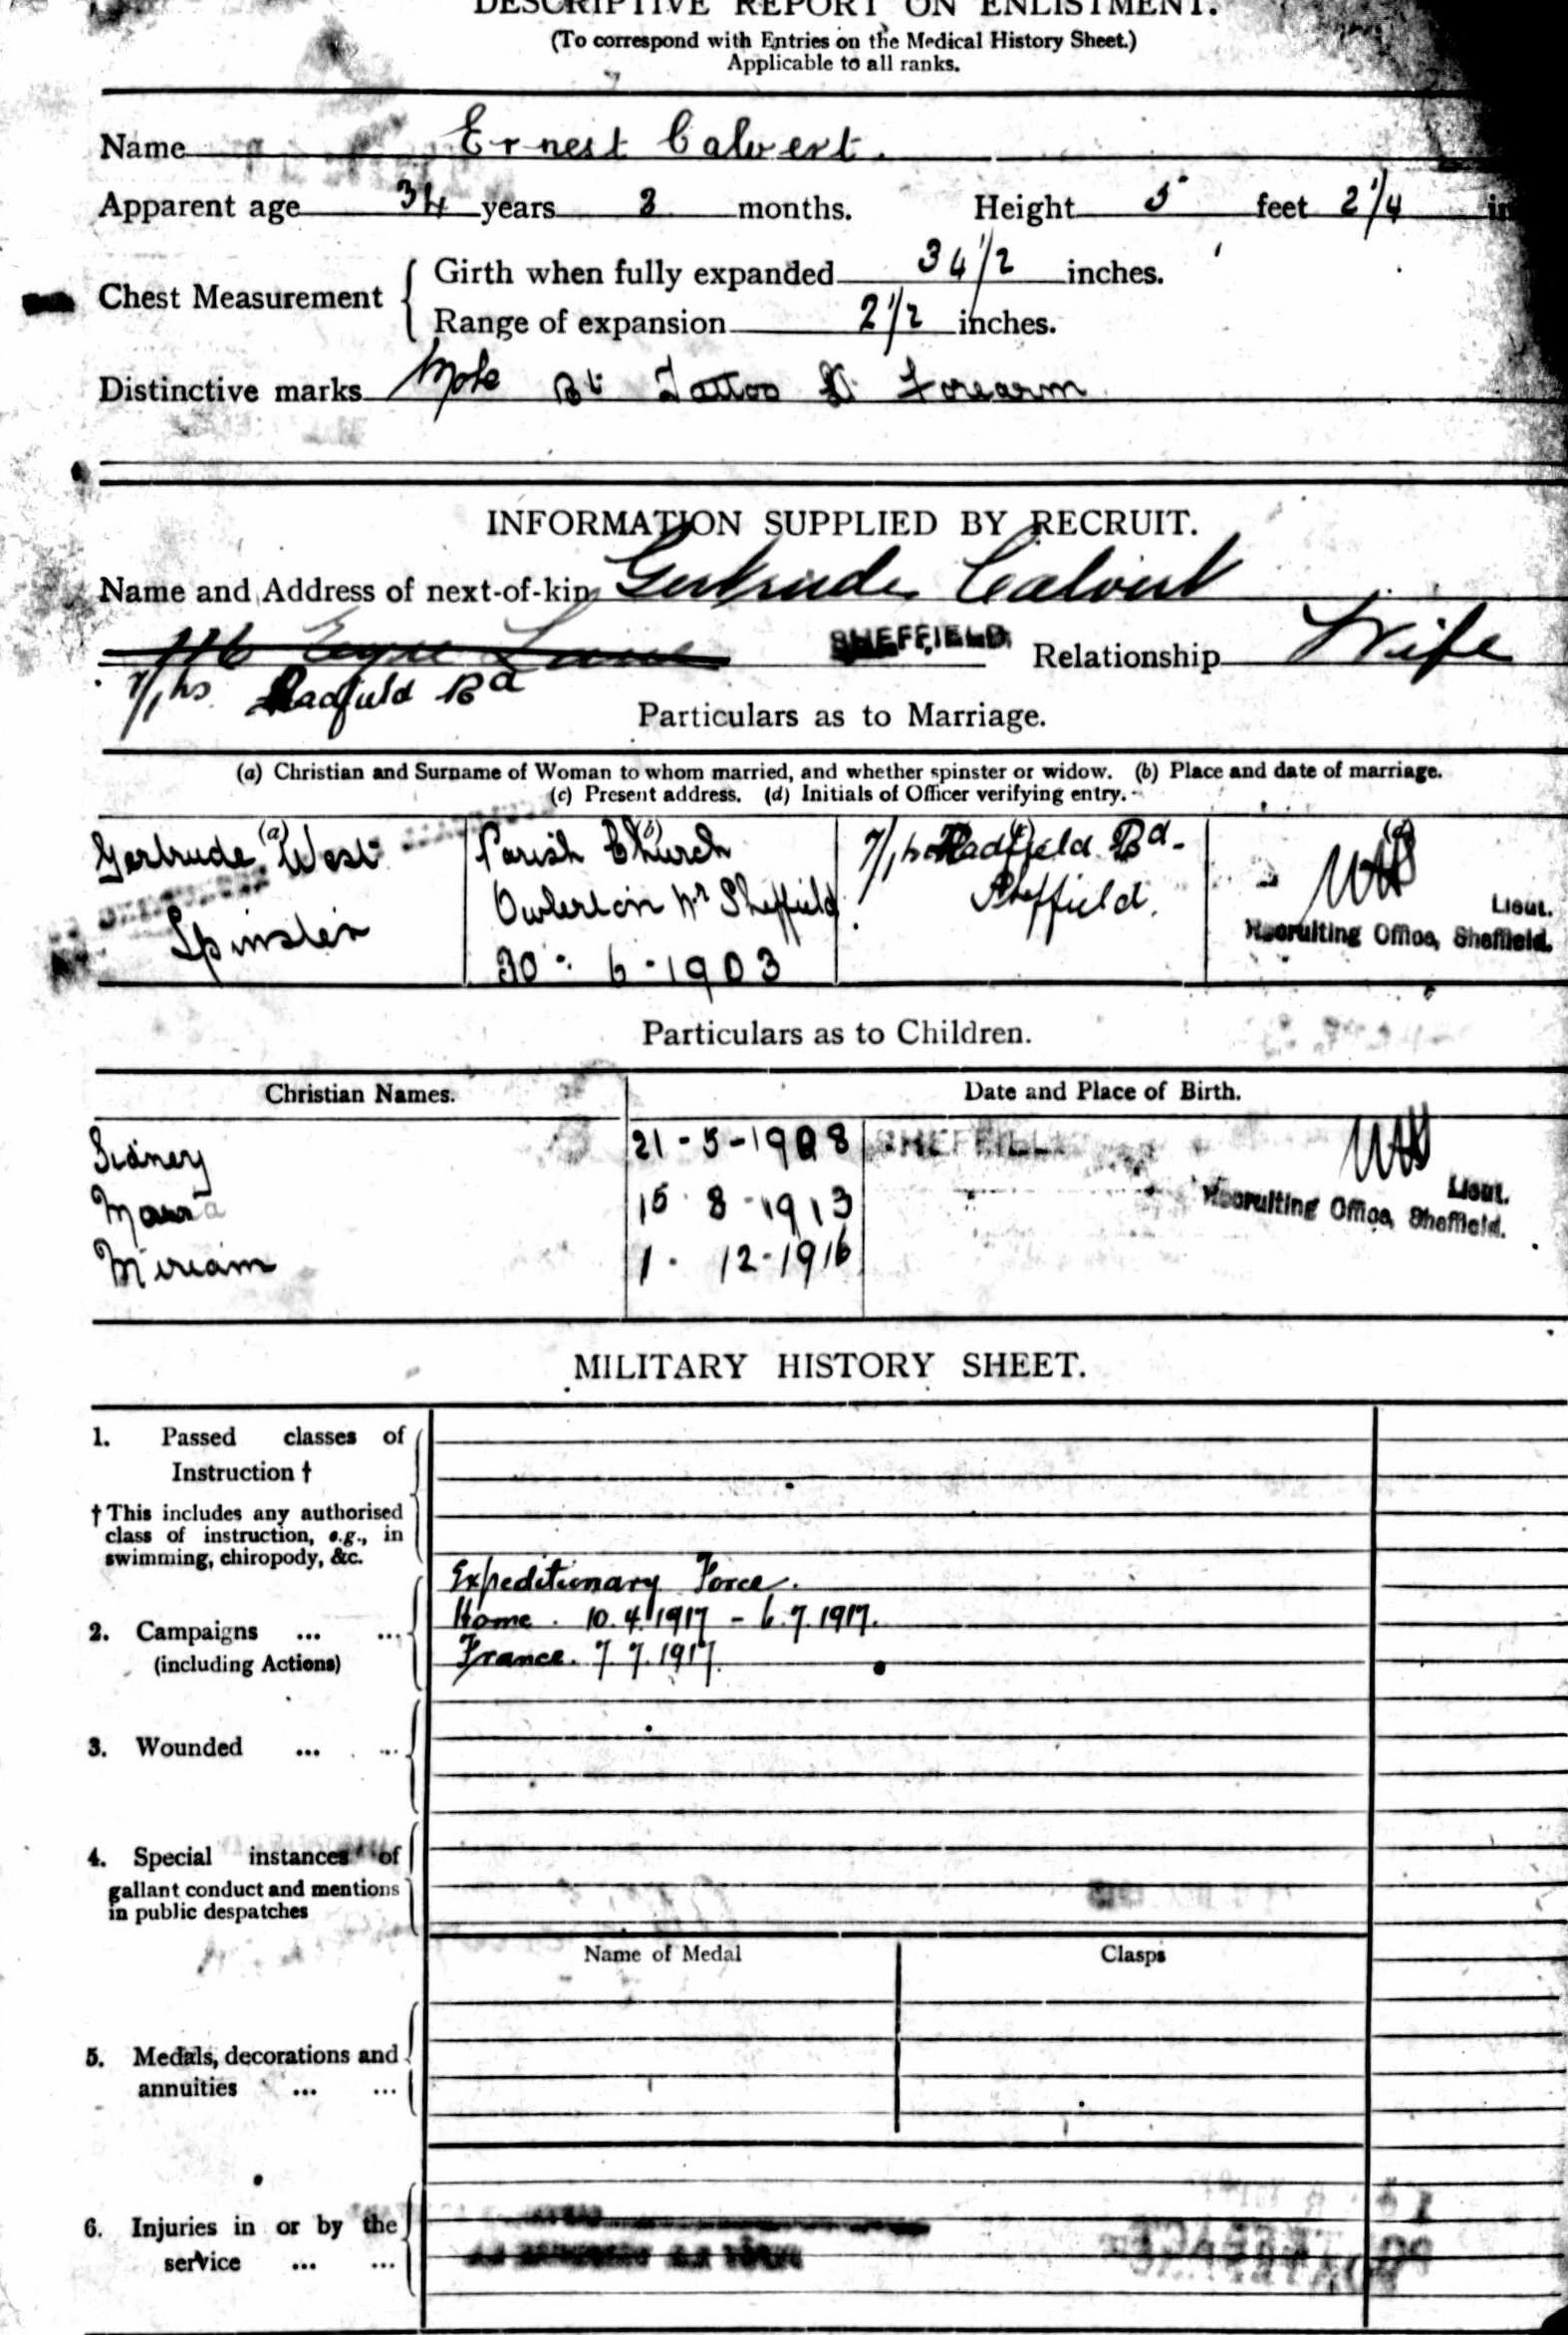 DESCRIPTIVE REPORT ON ENLISTMENT.
(To correspond with Entries on the Medical History Sheet.)
Applicable to all ranks.
Name Ernest Calvert.
Apparent age 34 years 3 months. Height 5 feet 2 1/4 in
Chest Measurement { Girth when fully expanded 34 1/2 inches.
Range of expansion 2 1/2 inches.
Distinctive marks Mole Rt Tattoo Forearm
INFORMATION SUPPLIED BY RECRUIT.
Name and Address of next-of-kin Gertrude Calvert
116 Eyre Lane SHEFFIELD. Relationship Wife
7/1 hs Radfield Rd
Particulars as to Marriage.
(a) Christian and Surname of Woman to whom married, and whether spinster or widow. (b) Place and date of marriage.
(c) Present address. (d) Initials of Officer verifying entry.
(a) (b) (c) (d)
Gertrude West Parish Church 7/1 hs Radfield Rd.
Owlerton Nr Sheffield Sheffield. Lieut.
Spinster Recruiting Office, Sheffield.
30 - 6 - 1903
Particulars as to Children.
Christian Names. Date and Place of Birth.
Sidney 21 - 5 - 1908 SHEFFIELD
15 8 - 1913 Lieut.
Recruiting Office, Sheffield.
Miriam 1 . 12 - 1916
MILITARY HISTORY SHEET.
1. Passed classes of
Instruction †
† This includes any authorised
class of instruction, e.g., in
swimming, chiropody, &c.
Expeditionary Force.
2. Campaigns ... ... Home . 10.4.1917 - 6.7.1917.
(including Actions) France. 7.7.1917.
3. Wounded ... ...
4. Special instances of
gallant conduct and mentions
in public despatches
Name of Medal Clasps
5. Medals, decorations and
annuities ... ...
6. Injuries in or by the
service ... ...